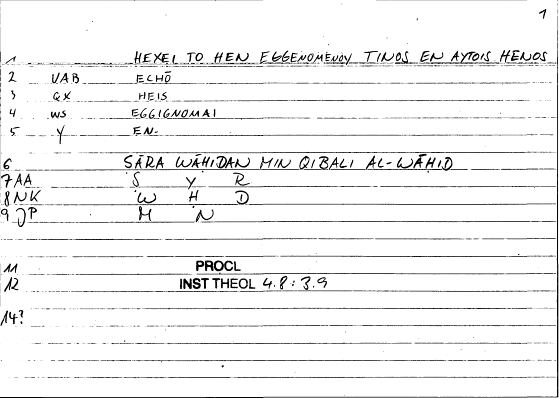 1
1 HEXEI TO HEN EGGENOMENOY TINOS EN AYTOIS HENOS
2 VAB ECHŌ
3 QX HEIS
4 WS EGGIGNOMAI
5 Y EN-
6 ṢĀRA WĀḤIDAN MIN QIBALI AL-WĀḤID
7 AA Ṣ Y R
8 NK W Ḥ D
9 JP M N
11 PROCL
12 INST THEOL 4.8 : 3.9
14?